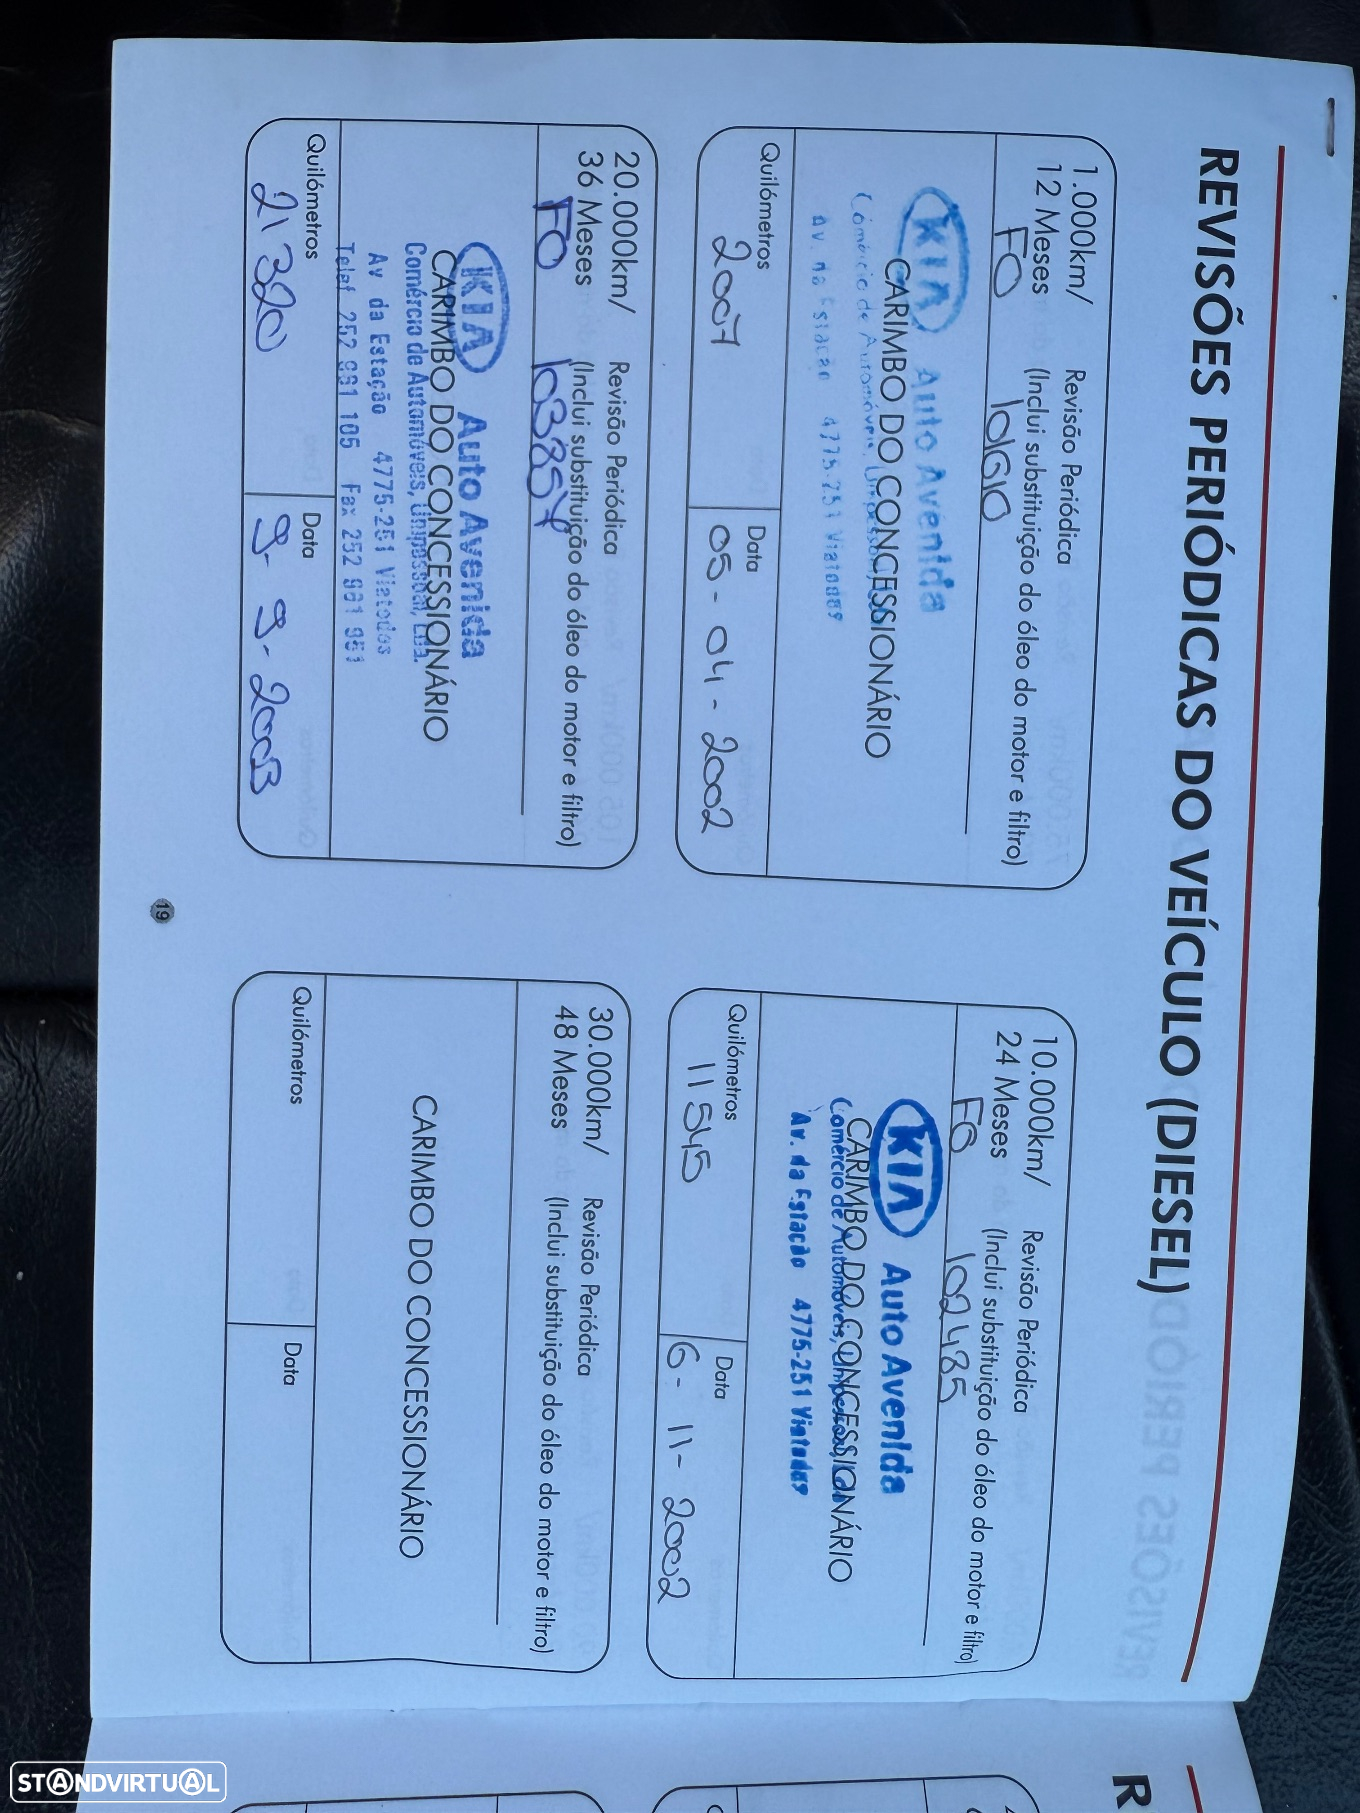 REVISÕES PERIÓDICAS DO VEÍCULO (DIESEL)
1.000km/ Revisão Periódica
12 Meses (Inclui substituição do óleo do motor e filtro)
FO 101610
KIA Auto Avenida
CARIMBO DO CONCESSIONÁRIO
Comércio de Automóveis, Unipessoal
Av. da Estação 4775-251 Viatodos
Quilómetros Data
2007 05-04-2002
10.000km/ Revisão Periódica
24 Meses (Inclui substituição do óleo do motor e filtro)
FO 102485
KIA Auto Avenida
CARIMBO DO CONCESSIONÁRIO
Comércio de Automóveis, Unipessoal, Lda.
Av. da Estação 4775-251 Viatodos
Quilómetros Data
11545 6-11-2002
20.000km/ Revisão Periódica
36 Meses (Inclui substituição do óleo do motor e filtro)
FO 103857
KIA Auto Avenida
CARIMBO DO CONCESSIONÁRIO
Comércio de Automóveis, Unipessoal, Lda.
Av da Estação 4775-251 Viatodos
Telef 252 961 105 Fax 252 961 951
Quilómetros Data
21320 9-9-2003
30.000km/ Revisão Periódica
48 Meses (Inclui substituição do óleo do motor e filtro)
CARIMBO DO CONCESSIONÁRIO
Quilómetros Data
19
R
STANDVIRTUAL